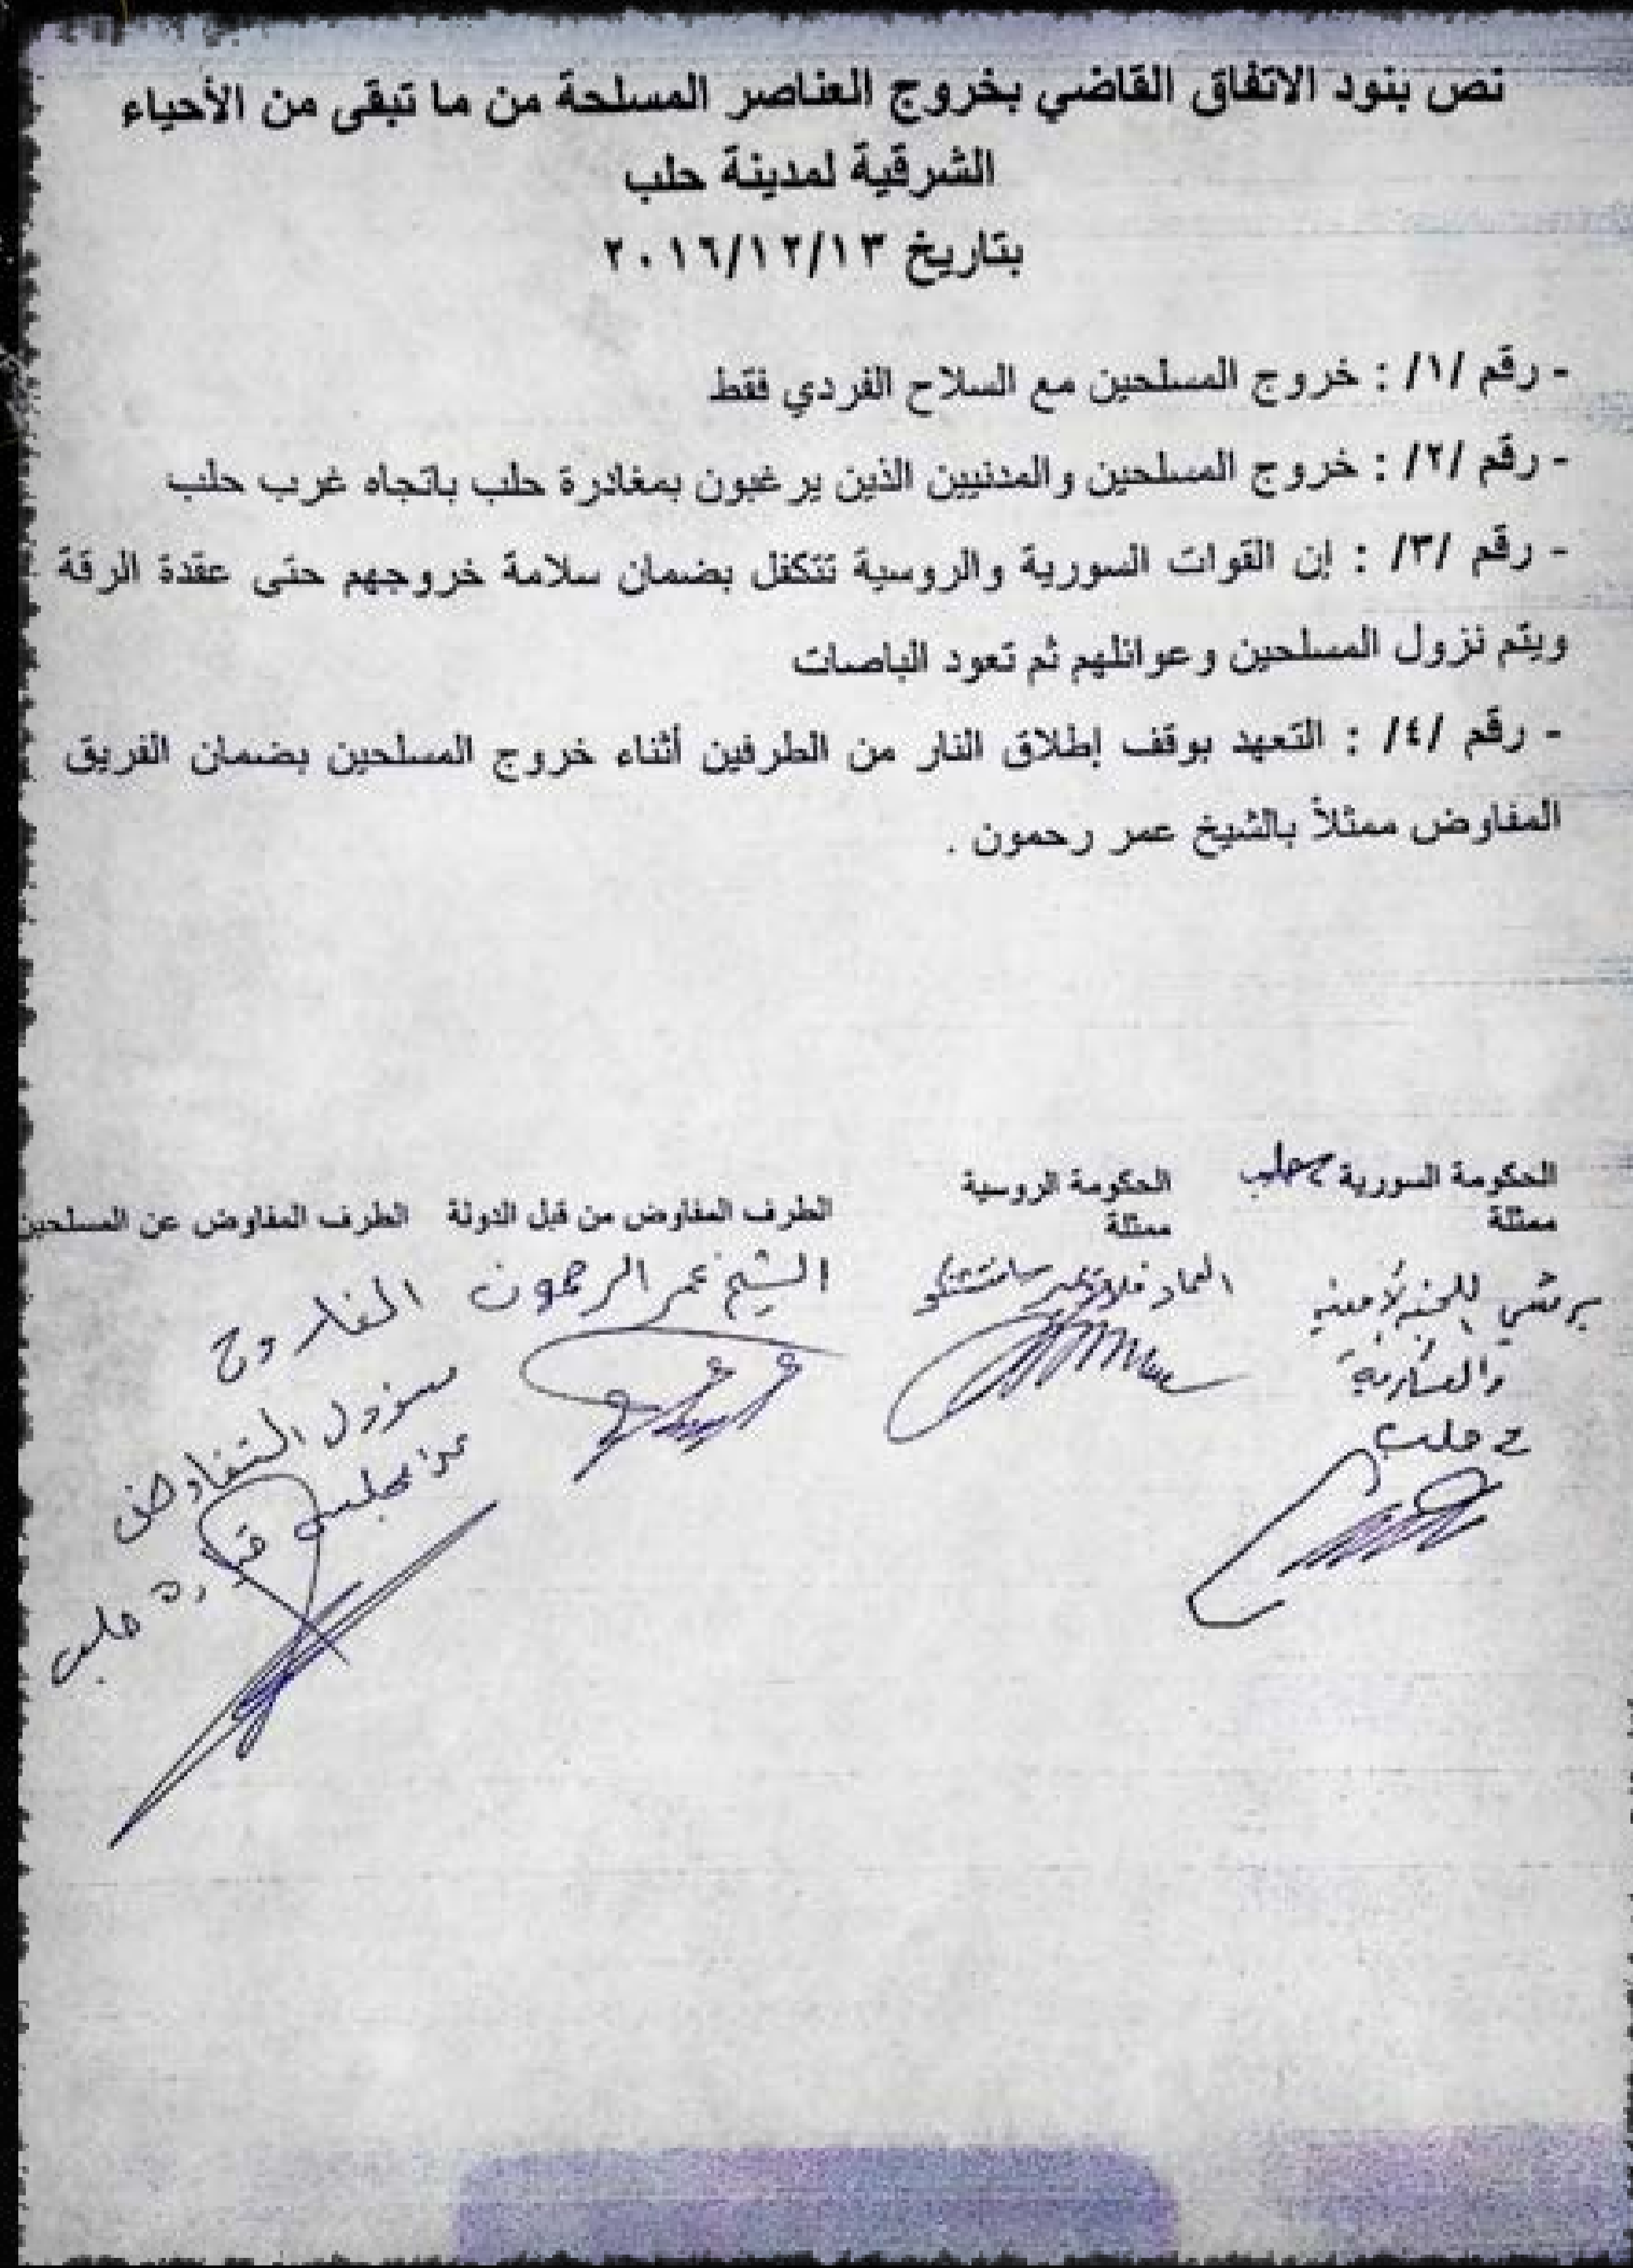 نص بنود الاتفاق القاضي بخروج العناصر المسلحة من ما تبقى من الأحياء
الشرقية لمدينة حلب
بتاريخ ٢٠١٦/١٢/١٣
- رقم /١/ : خروج المسلحين مع السلاح الفردي فقط
- رقم /٢/ : خروج المسلحين والمدنيين الذين يرغبون بمغادرة حلب باتجاه غرب حلب
- رقم /٣/ : إن القوات السورية والروسية تتكفل بضمان سلامة خروجهم حتى عقدة الرقة
ويتم نزول المسلحين وعوائلهم ثم تعود الباصات
- رقم /٤/ : التعهد بوقف إطلاق النار من الطرفين أثناء خروج المسلحين بضمان الفريق
المفاوض ممثلاً بالشيخ عمر رحمون .
الحكومة السورية
ممثلة
للجنة الأمنية
والعسكرية
حلب
الحكومة الروسية
ممثلة
العماد
الطرف المفاوض من قبل الدولة
الشيخ عمر الرحمون
الطرف المفاوض عن المسلحين
الفاروح
مسؤول التفاوض
عن مجلس قيادة حلب